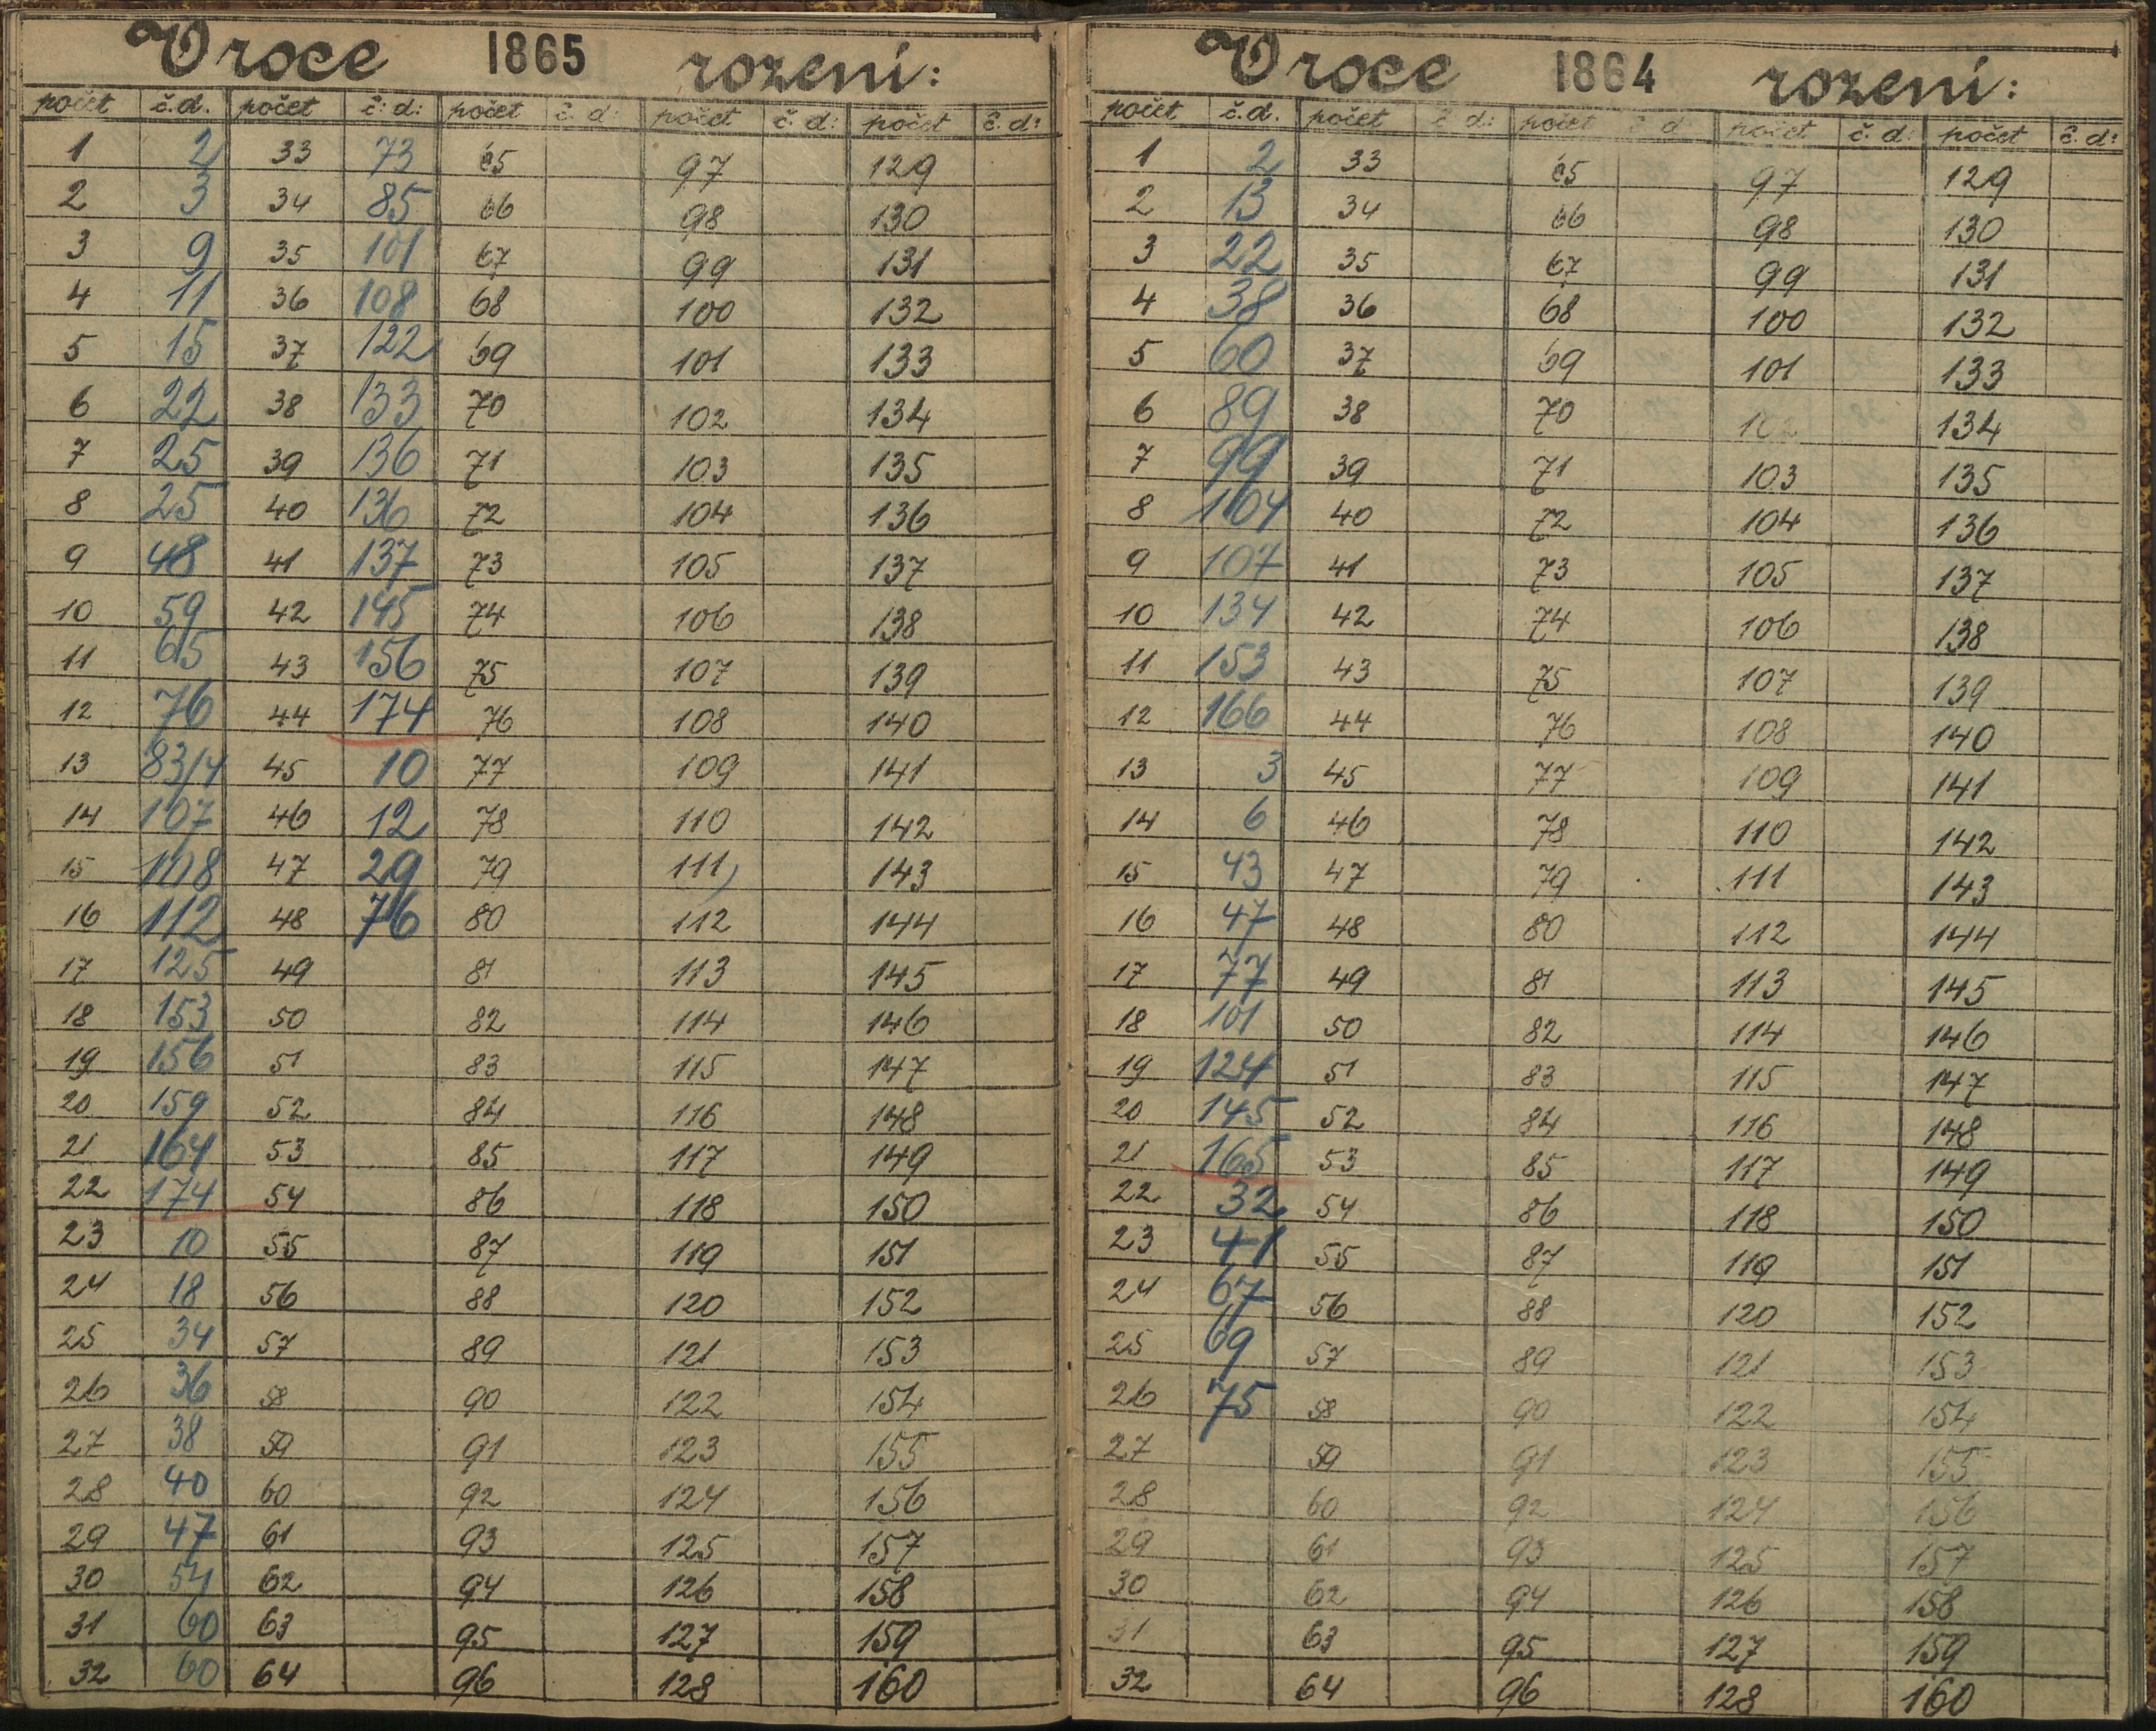 V roce 1865 rození:
počet č.d. počet č:d: počet č.d: počet č.d: počet č.d:
1 2 33 73 65 97 129
2 3 34 85 66 98 130
3 9 35 101 67 99 131
4 11 36 108 68 100 132
5 15 37 122 69 101 133
6 22 38 133 70 102 134
7 25 39 136 71 103 135
8 25 40 136 72 104 136
9 48 41 137 73 105 137
10 59 42 145 74 106 138
11 65 43 156 75 107 139
12 76 44 174 76 108 140
13 83/4 45 10 77 109 141
14 107 46 12 78 110 142
15 108 47 29 79 111 143
16 112 48 76 80 112 144
17 125 49 81 113 145
18 153 50 82 114 146
19 156 51 83 115 147
20 159 52 84 116 148
21 164 53 85 117 149
22 174 54 86 118 150
23 10 55 87 119 151
24 18 56 88 120 152
25 34 57 89 121 153
26 36 58 90 122 154
27 38 59 91 123 155
28 40 60 92 124 156
29 47 61 93 125 157
30 54 62 94 126 158
31 60 63 95 127 159
32 60 64 96 128 160
V roce 1864 rození:
počet č.d. počet č d: počet č d počet č.d: počet č.d:
1 2 33 65 97 129
2 13 34 66 98 130
3 22 35 67 99 131
4 38 36 68 100 132
5 60 37 69 101 133
6 89 38 70 102 134
7 99 39 71 103 135
8 104 40 72 104 136
9 107 41 73 105 137
10 134 42 74 106 138
11 153 43 75 107 139
12 166 44 76 108 140
13 3 45 77 109 141
14 6 46 78 110 142
15 43 47 79 111 143
16 47 48 80 112 144
17 77 49 81 113 145
18 101 50 82 114 146
19 124 51 83 115 147
20 145 52 84 116 148
21 165 53 85 117 149
22 32 54 86 118 150
23 41 55 87 119 151
24 67 56 88 120 152
25 69 57 89 121 153
26 75 58 90 122 154
27 59 91 123 155
28 60 92 124 156
29 61 93 125 157
30 62 94 126 158
31 63 95 127 159
32 64 96 128 160